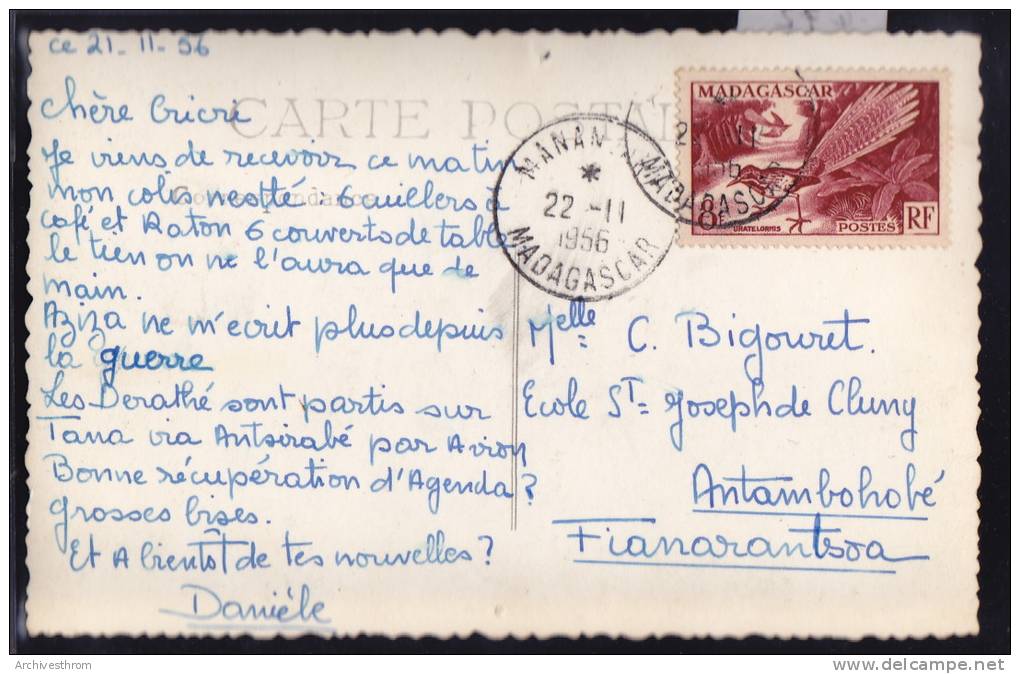 ce 21-11-56
CARTE POSTALE
Chère Cricri
Je viens de recevoir ce matin
mon colis nestlé. 6 cuillers à
Correspondance
café et Raton 6 couverts de table
le tien on ne l'aura que de
main.
Aziza ne m'ecrit plus depuis
la guerre
Les Derathé sont partis sur
Tana via Antsirabé par Avion
Bonne récupération d'Agenda?
Grosses bises.
Et A bientôt de tes nouvelles?
Danièle
MANAN
*
22 -11
1956
MADAGASCAR
11
56
MADAGASCAR
MADAGASCAR
8F
URATELORNIS
POSTES
RF
Melle C. Bigouret.
Ecole ST= Joseph de Cluny
Antambohobé
Fianarantsoa
Archivesthrom
delcampe.net